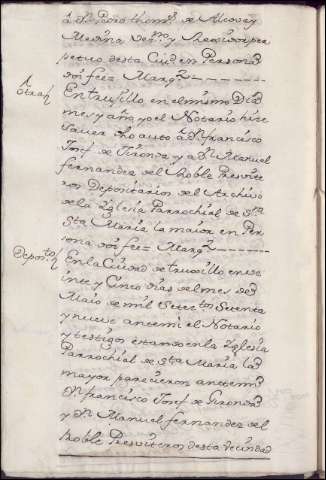 á Dn. Pedro thomas de Alcovar y
Medina Vezno. y Rexidor per
petuo desta Ciud en Persona
doi fee= Margl
otra
En truxillo en el mismo Dia
mes y año yo el Notario hize
Saver dho auto á Dn. francisco
Josef de Gironda y á Dn. Manuel
fernandez del Roble Presvite
ros Depositarios del Archivo
de la Yglesia Parrochial de Sta
Sta Maria la maior en Per
sona doi fee= Margl
Deposito
En la Ciudad de truxillo en ve
inte y Cinco dias del mes de
Maio de mil Setectos. Setenta
y nueve ante mi el Notario
y testigos estando en la Yglesia
Parrochial de Sta Maria la
mayor parecieron ante mi
Dn. francisco Josef de Gironda
y Dn. Manuel fernandez del
Roble Presviteros desta vecindad